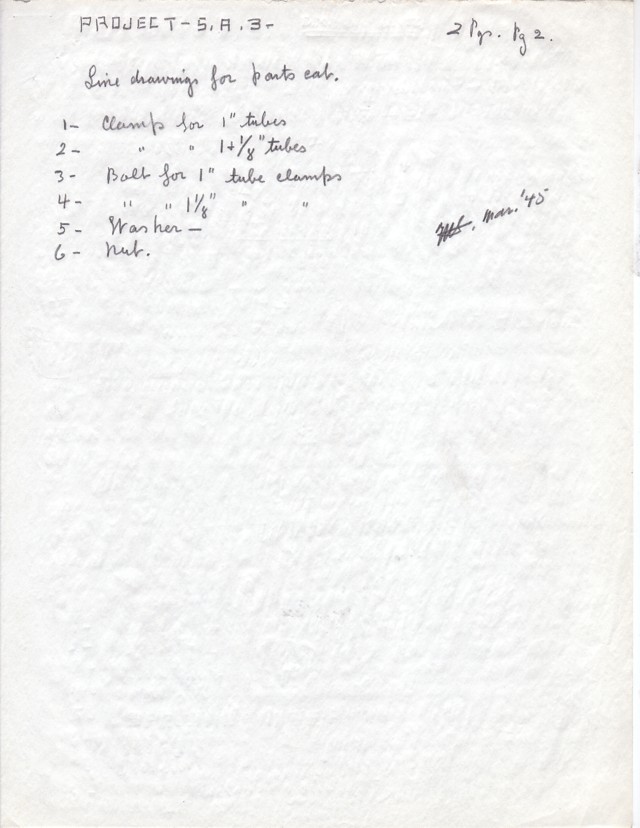 PROJECT - S.A.3 -
2 Pgs. Pg 2.
Line drawings for parts cat.
1 - Clamp for 1" tubes
2 - " " 1+1/8" tubes
3 - Bolt for 1" tube clamps
4 - " " 1 1/8" " "
5 - Washer -
6 - Nut.
Mar. '45